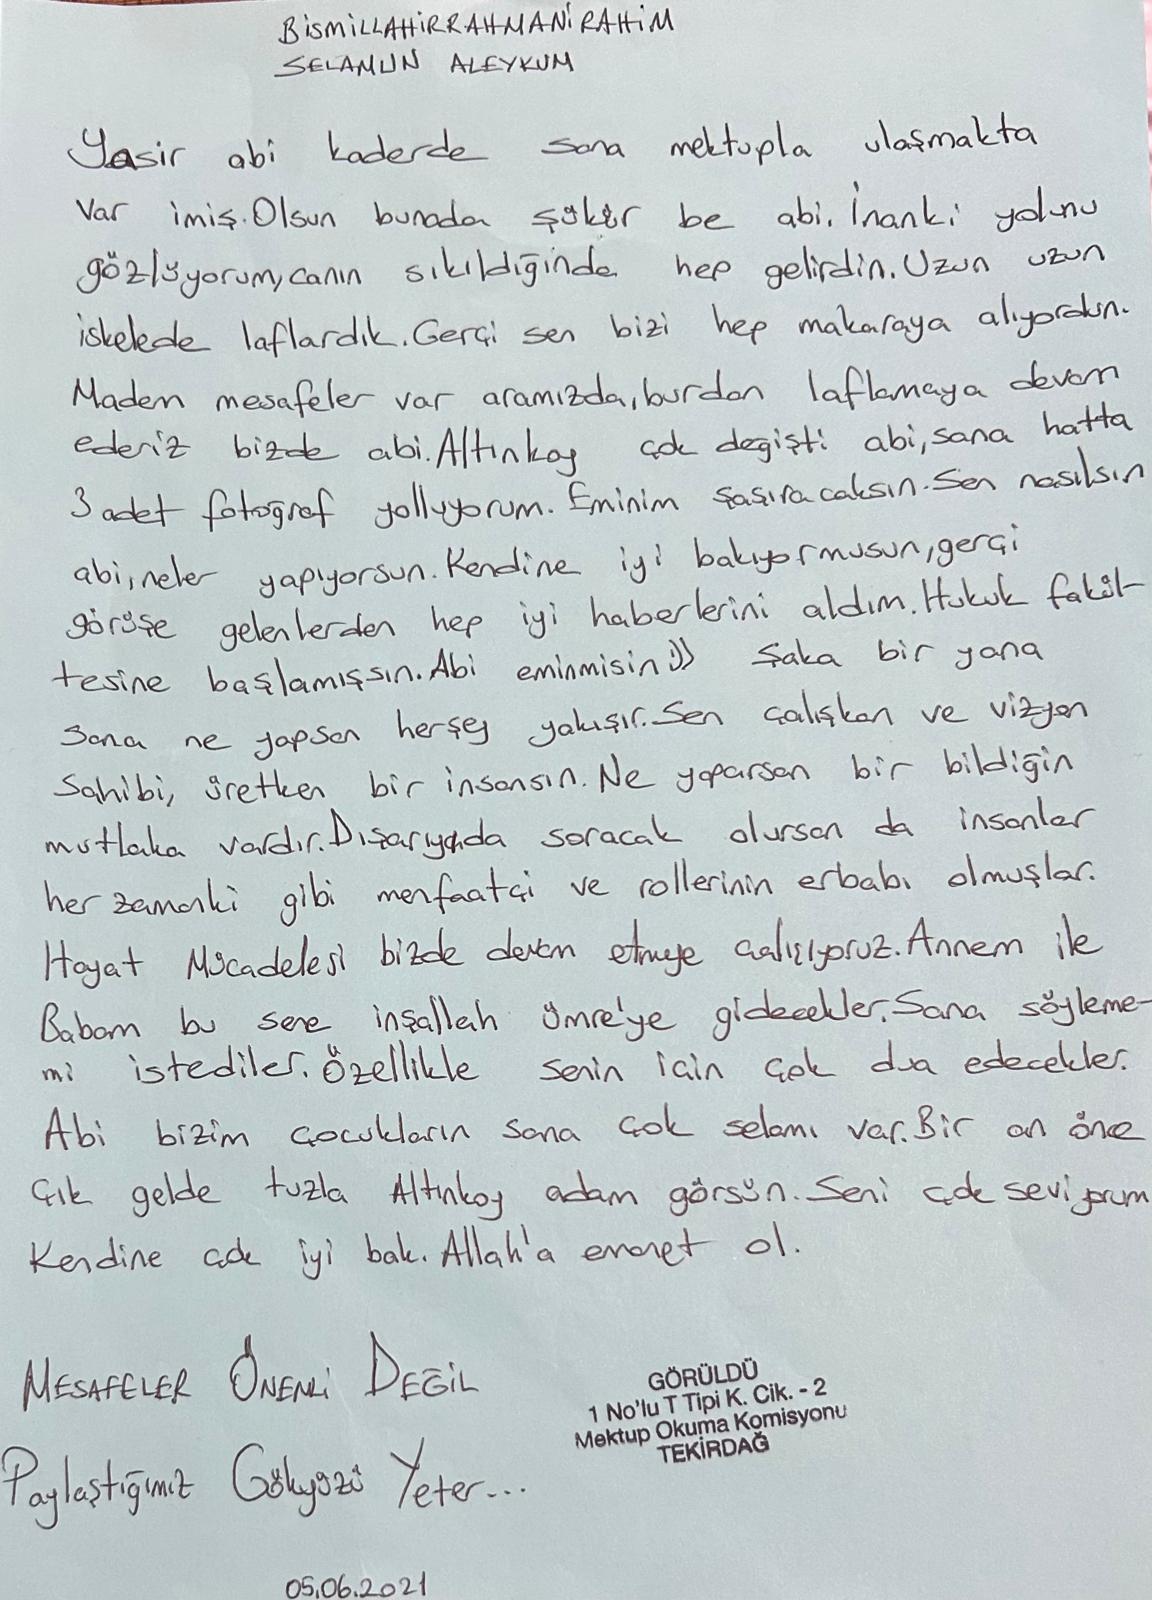 BİSMİLLAHİRRAHMANİRAHİM
SELAMUN ALEYKUM
Yasir abi kaderde sana mektupla ulaşmakta
var imiş. Olsun bunada şükür be abi. İnanki yolunu
gözlüyorum, canın sıkıldığında hep gelirdin. Uzun uzun
iskelede laflardık. Gerçi sen bizi hep makaraya alıyordun.
Madem mesafeler var aramızda, burdan laflamaya devam
ederiz bizde abi. Altınkoy çok değişti abi, sana hatta
3 adet fotoğraf yolluyorum. Eminim şaşıracaksın. Sen nasılsın
abi, neler yapıyorsun. Kendine iyi bakıyormusun, gerçi
görüşe gelenlerden hep iyi haberlerini aldım. Hukuk fakül-
tesine başlamışsın. Abi eminmisin :)) Şaka bir yana
sana ne yapsan herşey yakışır. Sen çalışkan ve vizyon
sahibi, üretken bir insansın. Ne yaparsan bir bildiğin
mutlaka vardır. Dışarıyıda soracak olursan da insanlar
her zamanki gibi menfaatçi ve rollerinin erbabı olmuşlar.
Hayat Mücadelesi bizde devam etmeye çalışıyoruz. Annem ile
Babam bu sene inşallah Ümre'ye gidecekler. Sana söyleme-
mi istediler. Özellikle senin için çok dua edecekler.
Abi bizim çocukların sana çok selamı var. Bir an önce
çık gelde tuzla Altınkoy adam görsün. Seni çok seviyorum
Kendine çok iyi bak. Allah'a emanet ol.
MESAFELER ÖNEMLİ DEĞİL
Paylaştığımız Gökyüzü Yeter...
GÖRÜLDÜ
1 No'lu T Tipi K. Cik. - 2
Mektup Okuma Komisyonu
TEKİRDAĞ
05.06.2021